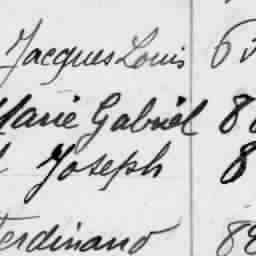 Jacques Louis 6
Marie Gabriel 8
Joseph 8
Ferdinand 88